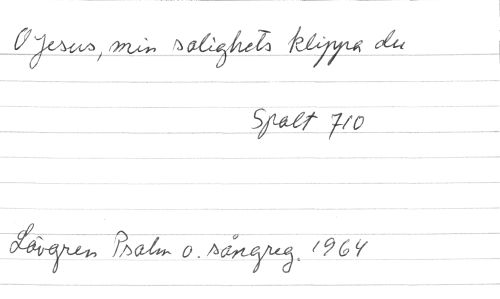 O Jesus, min salighets klippa du
Spalt 710
Lövgren Psalm o. sångreg. 1964